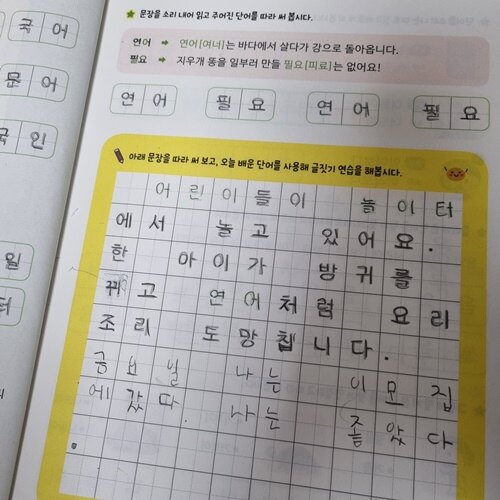 국 어
문 어
국 인
일
터
문장을 소리 내어 읽고 주어진 단어를 따라 써 봅시다.
연어 → 연어[여너]는 바다에서 살다가 강으로 돌아옵니다.
필요 → 지우개 똥을 일부러 만들 필요[피료]는 없어요!
연 어 필 요 연 어 필 요
아래 문장을 따라 써 보고, 오늘 배운 단어를 사용해 글짓기 연습을 해봅시다.
어린이들이 놀이터
에서 놀고 있어요.
한 아이가 방귀를
뀌고 연어처럼 요리
조리 도망칩니다.
금요일 나는 이모집
에 갔다. 나는 좋았다